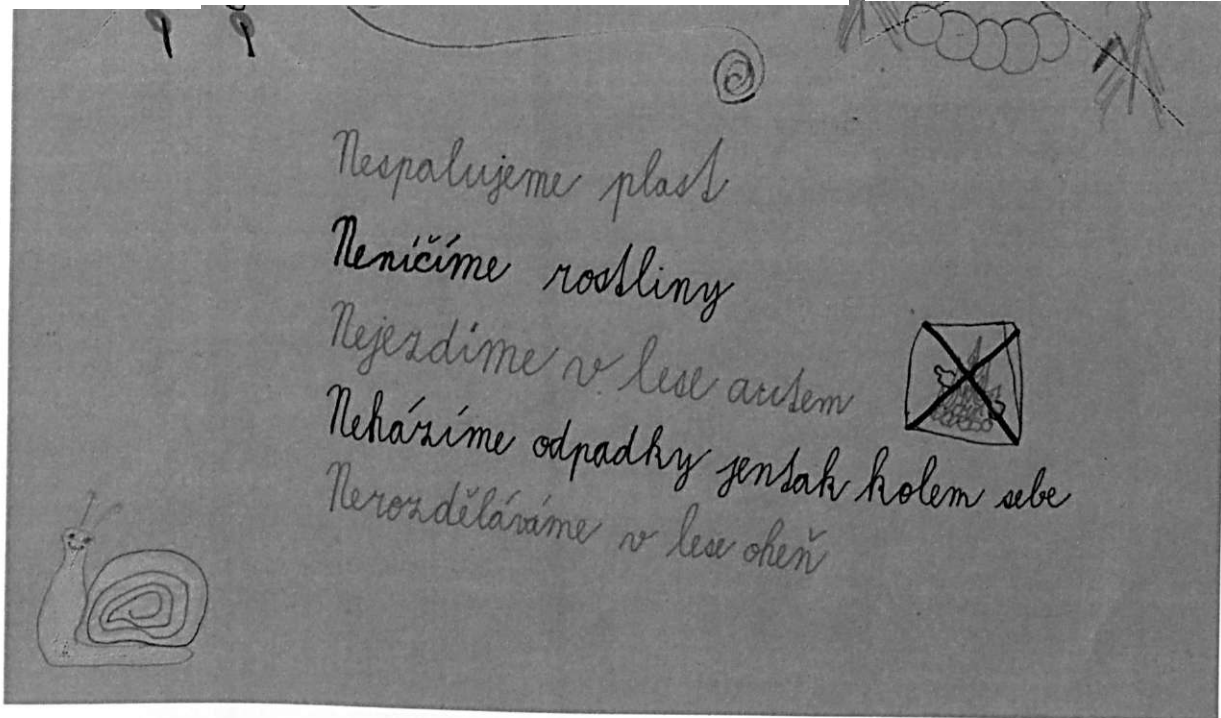 Nespalujeme plast
Neničíme rostliny
Nejezdíme v lese autem
Neházíme odpadky jentak kolem sebe
Nerozděláváme v lese oheň